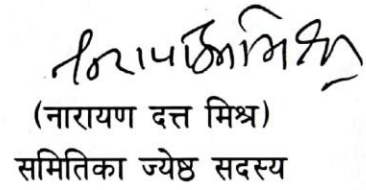 (नारायण दत्त मिश्र)
समितिका ज्येष्ठ सदस्य